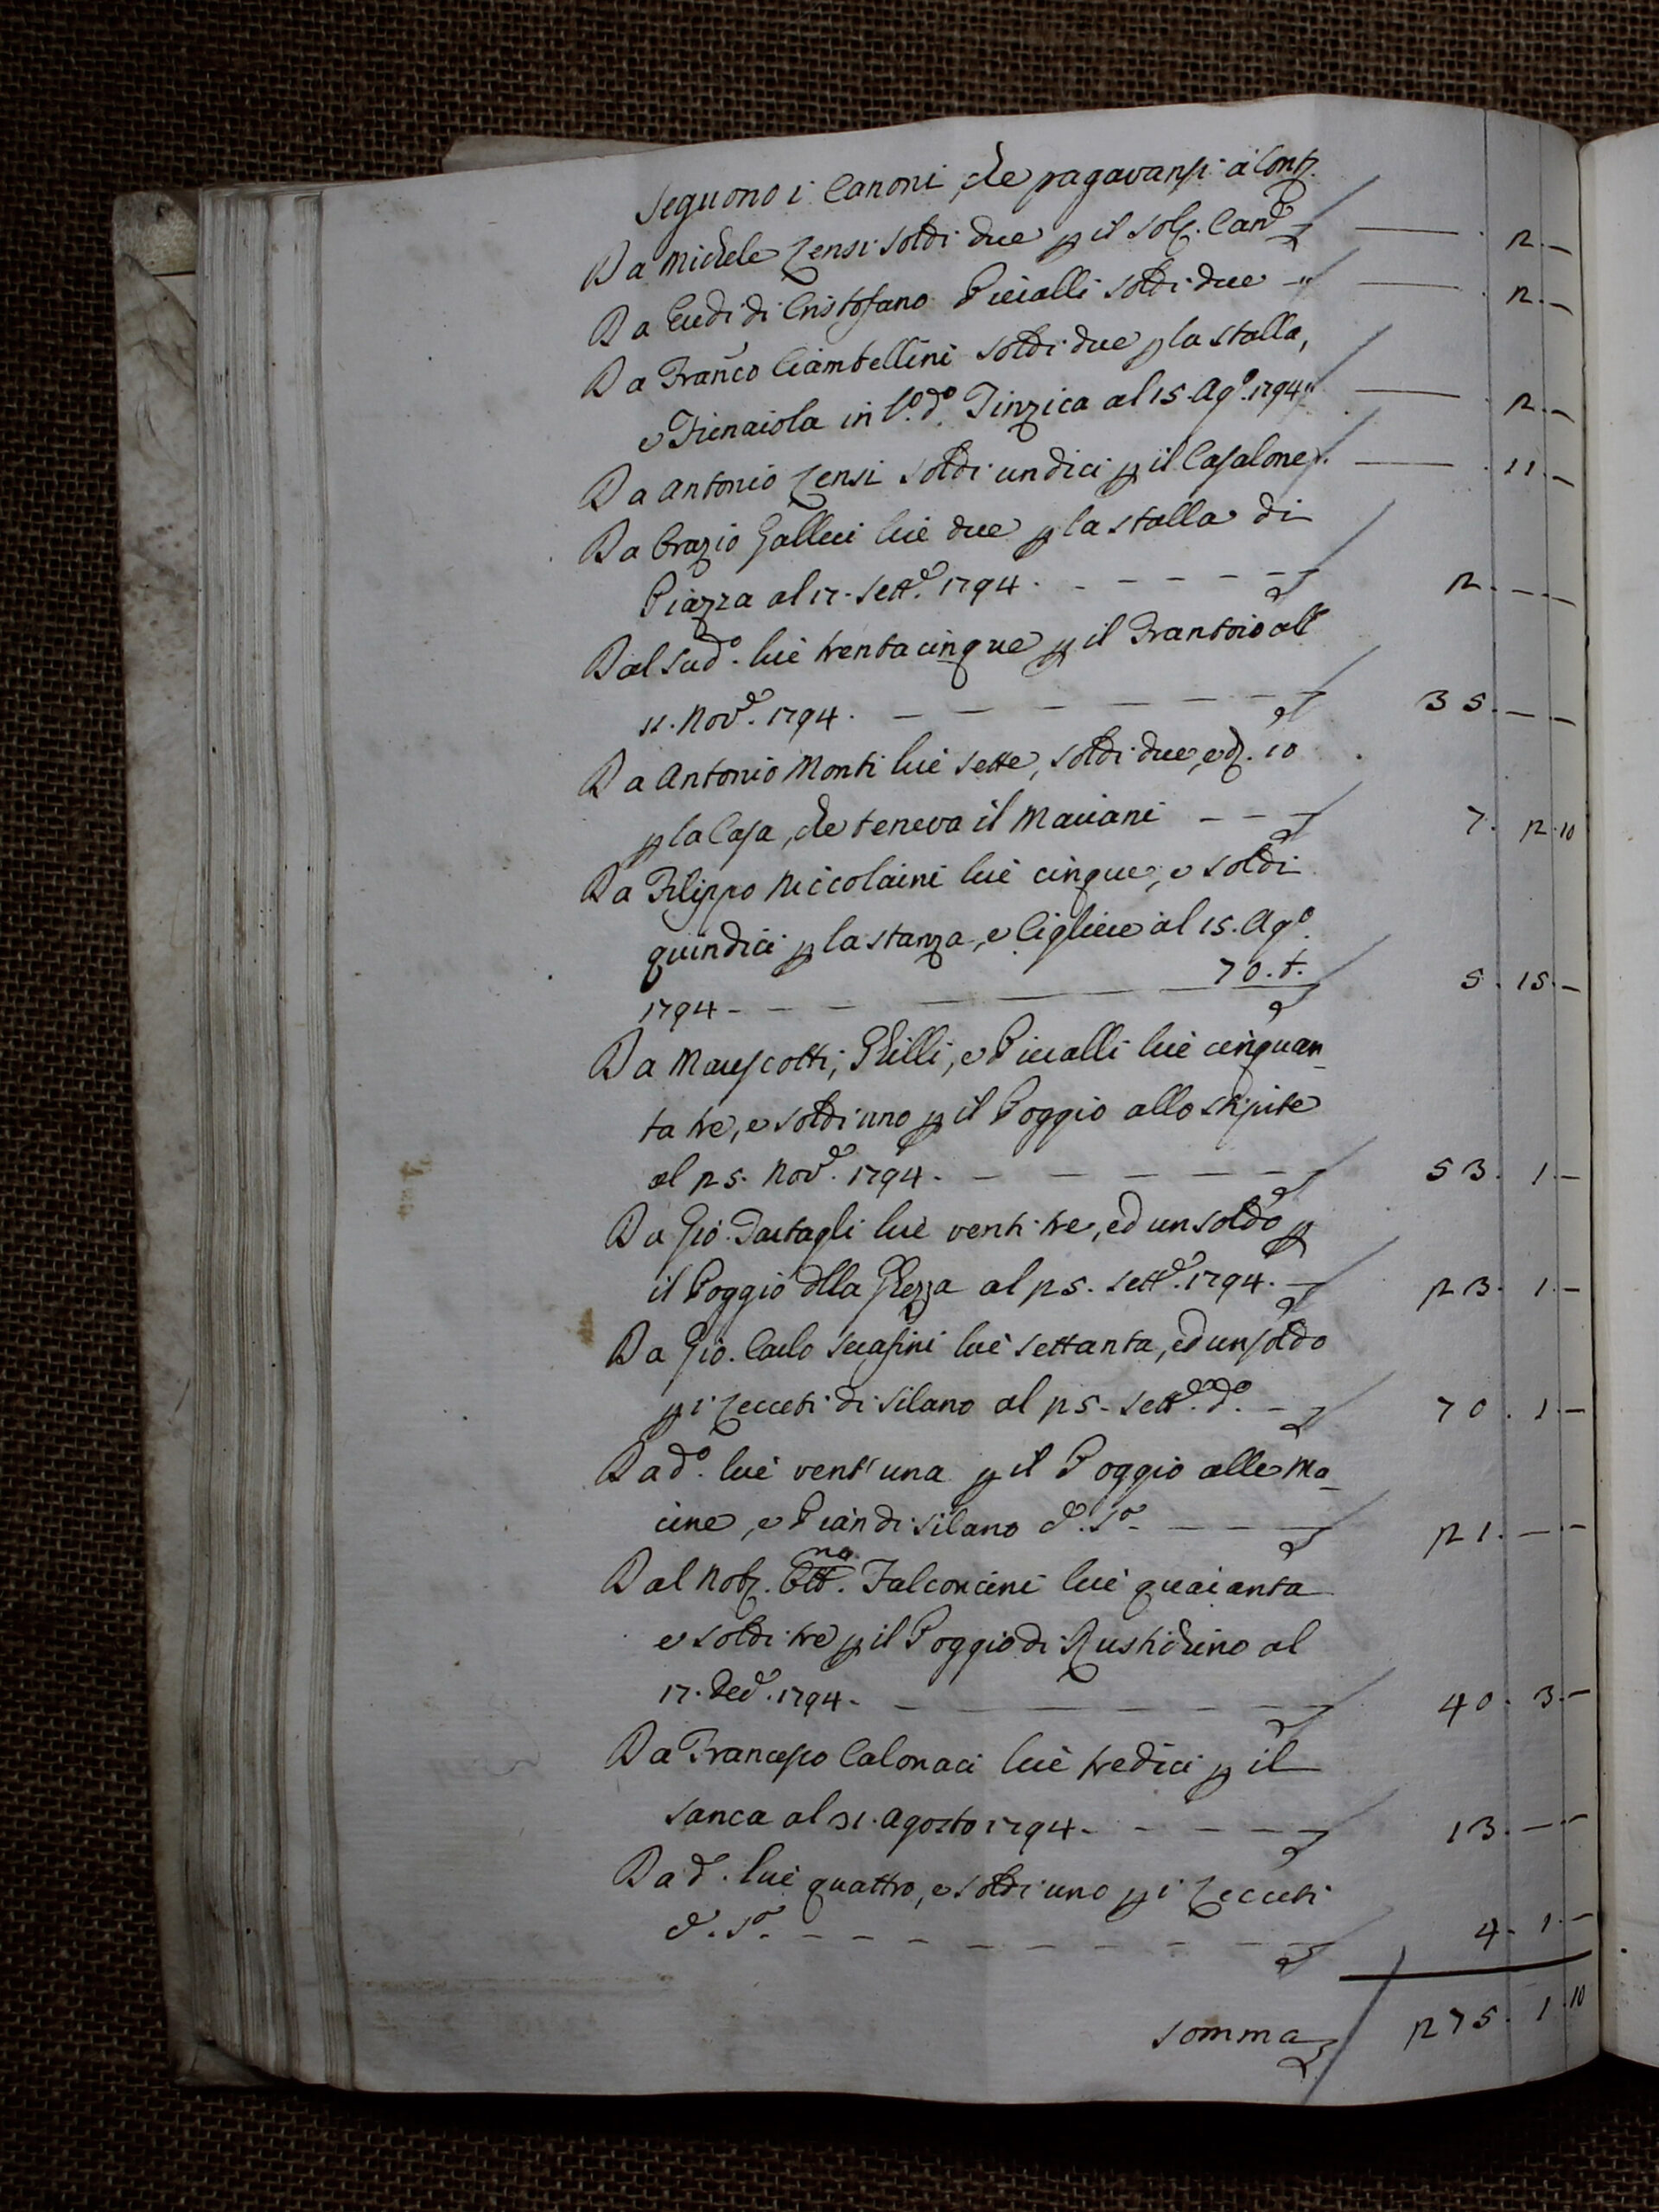 Seguono i Canoni, che pagavansi a Cont.
Da Michele Zensi soldi due p il sol. Can. — . 2. —
Da Eredi di Cristofano Piccalli soldi due — . 2. —
Da Franco Ciambellini soldi due p la stalla,
e Fienaiola in l.º d.º Tinzica al 15. Ag.º 1794 — . 2. —
Da Antonio Zensi soldi undici p il Casalone — . 11. —
Da Orazio Gallui lire due p la stalla di
Piazza al 17. Sett.e 1794. — 2. — . —
Dal sud.º lire trentacinque p il Frantoio all'
11. Nov.e 1794. — 35. — . —
Da Antonio Monti lire sette, soldi due, e d. 10
p la Casa, che teneva il Mariani — 7. 2. 10
Da Filippo Niccolaini lire cinque, e soldi
quindici p la stanza, e Cigliere al 15. Ag.º
1794 — 70. t. 5. 15. —
Da Mauscotti, Ghilli, e Piccalli lire cinquan_
ta tre, e soldi uno p il Poggio allo Stipite
al 25. Nov.e 1794. — 53. 1. —
Da Gio. Dartagli lire venti tre, ed un soldo p
il Poggio dlla Ghezza al 25. Sett.e 1794. — 23. 1. —
Da Gio. Carlo Serafini lire settanta, ed un soldo
p i Cecceti di Silano al 25. Sett.e d.º — 70. 1. —
Da d.º lire vent'una p il Poggio alle Ma_
cine, e Pian di Silano d.º S.ª — 21. — . —
Dal Nob. Ott.no Falconcini lire quaranta
e soldi tre p il Poggio di Rustichino al
17. Dec.e 1794. — 40. 3. —
Da Francesco Calonaci lire tredici p il
Sanca al 31. Agosto 1794. — 13. — . —
Da d.º lire quattro, e soldi uno p i Cecceti
d.º S.ª — 4. 1. —
Somma 275. 1. 10